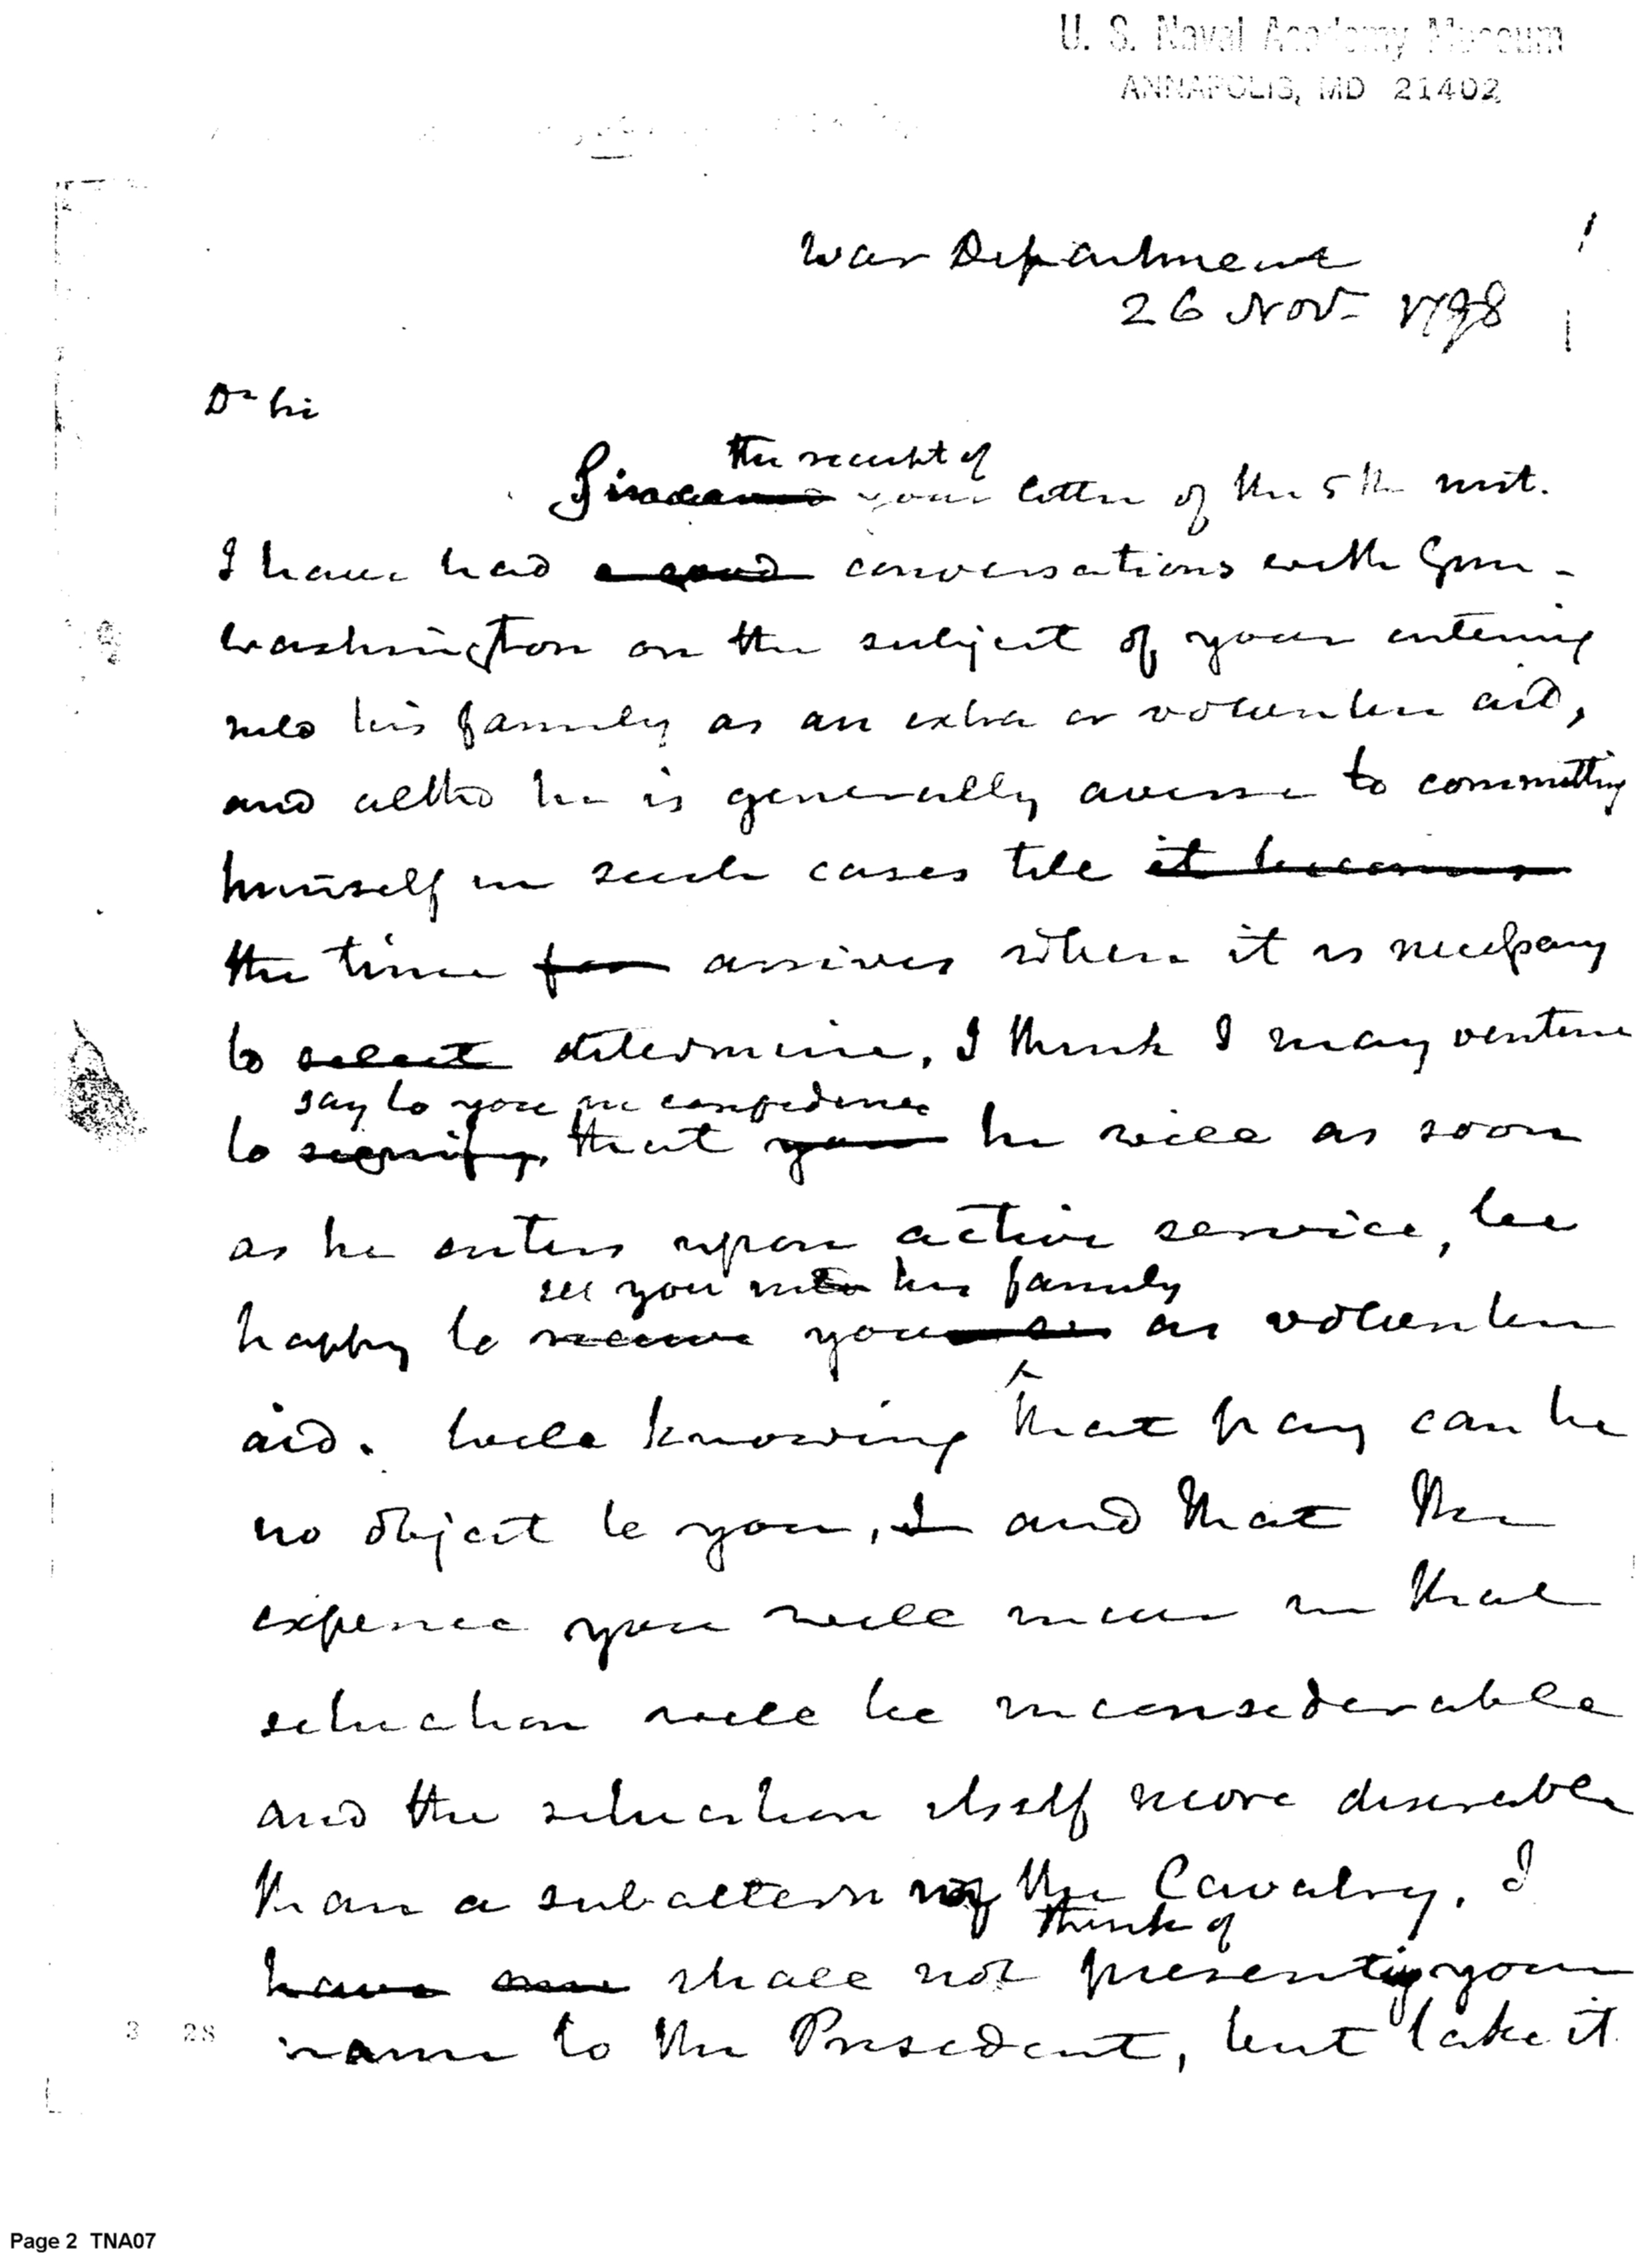 U. S. Naval Academy Museum
ANNAPOLIS, MD 21402
War Department
26 Nov. 1798
Dr Sir
the receipt of
Since your letter of the 5th inst.
I have had a good conversations with Genl.
Washington on the subject of your entering
into his family as an extra or volunteer aid,
and altho he is generally averse to committing
himself in such cases till it becomes
the time for arrives when it is necessary
to select determine, I think I may venture
say to you in confidence
to signify, that you he will as soon
as he enters upon active service, be
see you into his family
happy to receive you as as volunteer
aid. Well knowing that pay can be
no object to you, I and that the
expence you will incur in that
situation will be inconsiderable
and the situation itself more desirable
than a subaltern of the Cavalry. I
think of
have shall not presenting your
name to the President, but take it
3 28
Page 2 TNA07